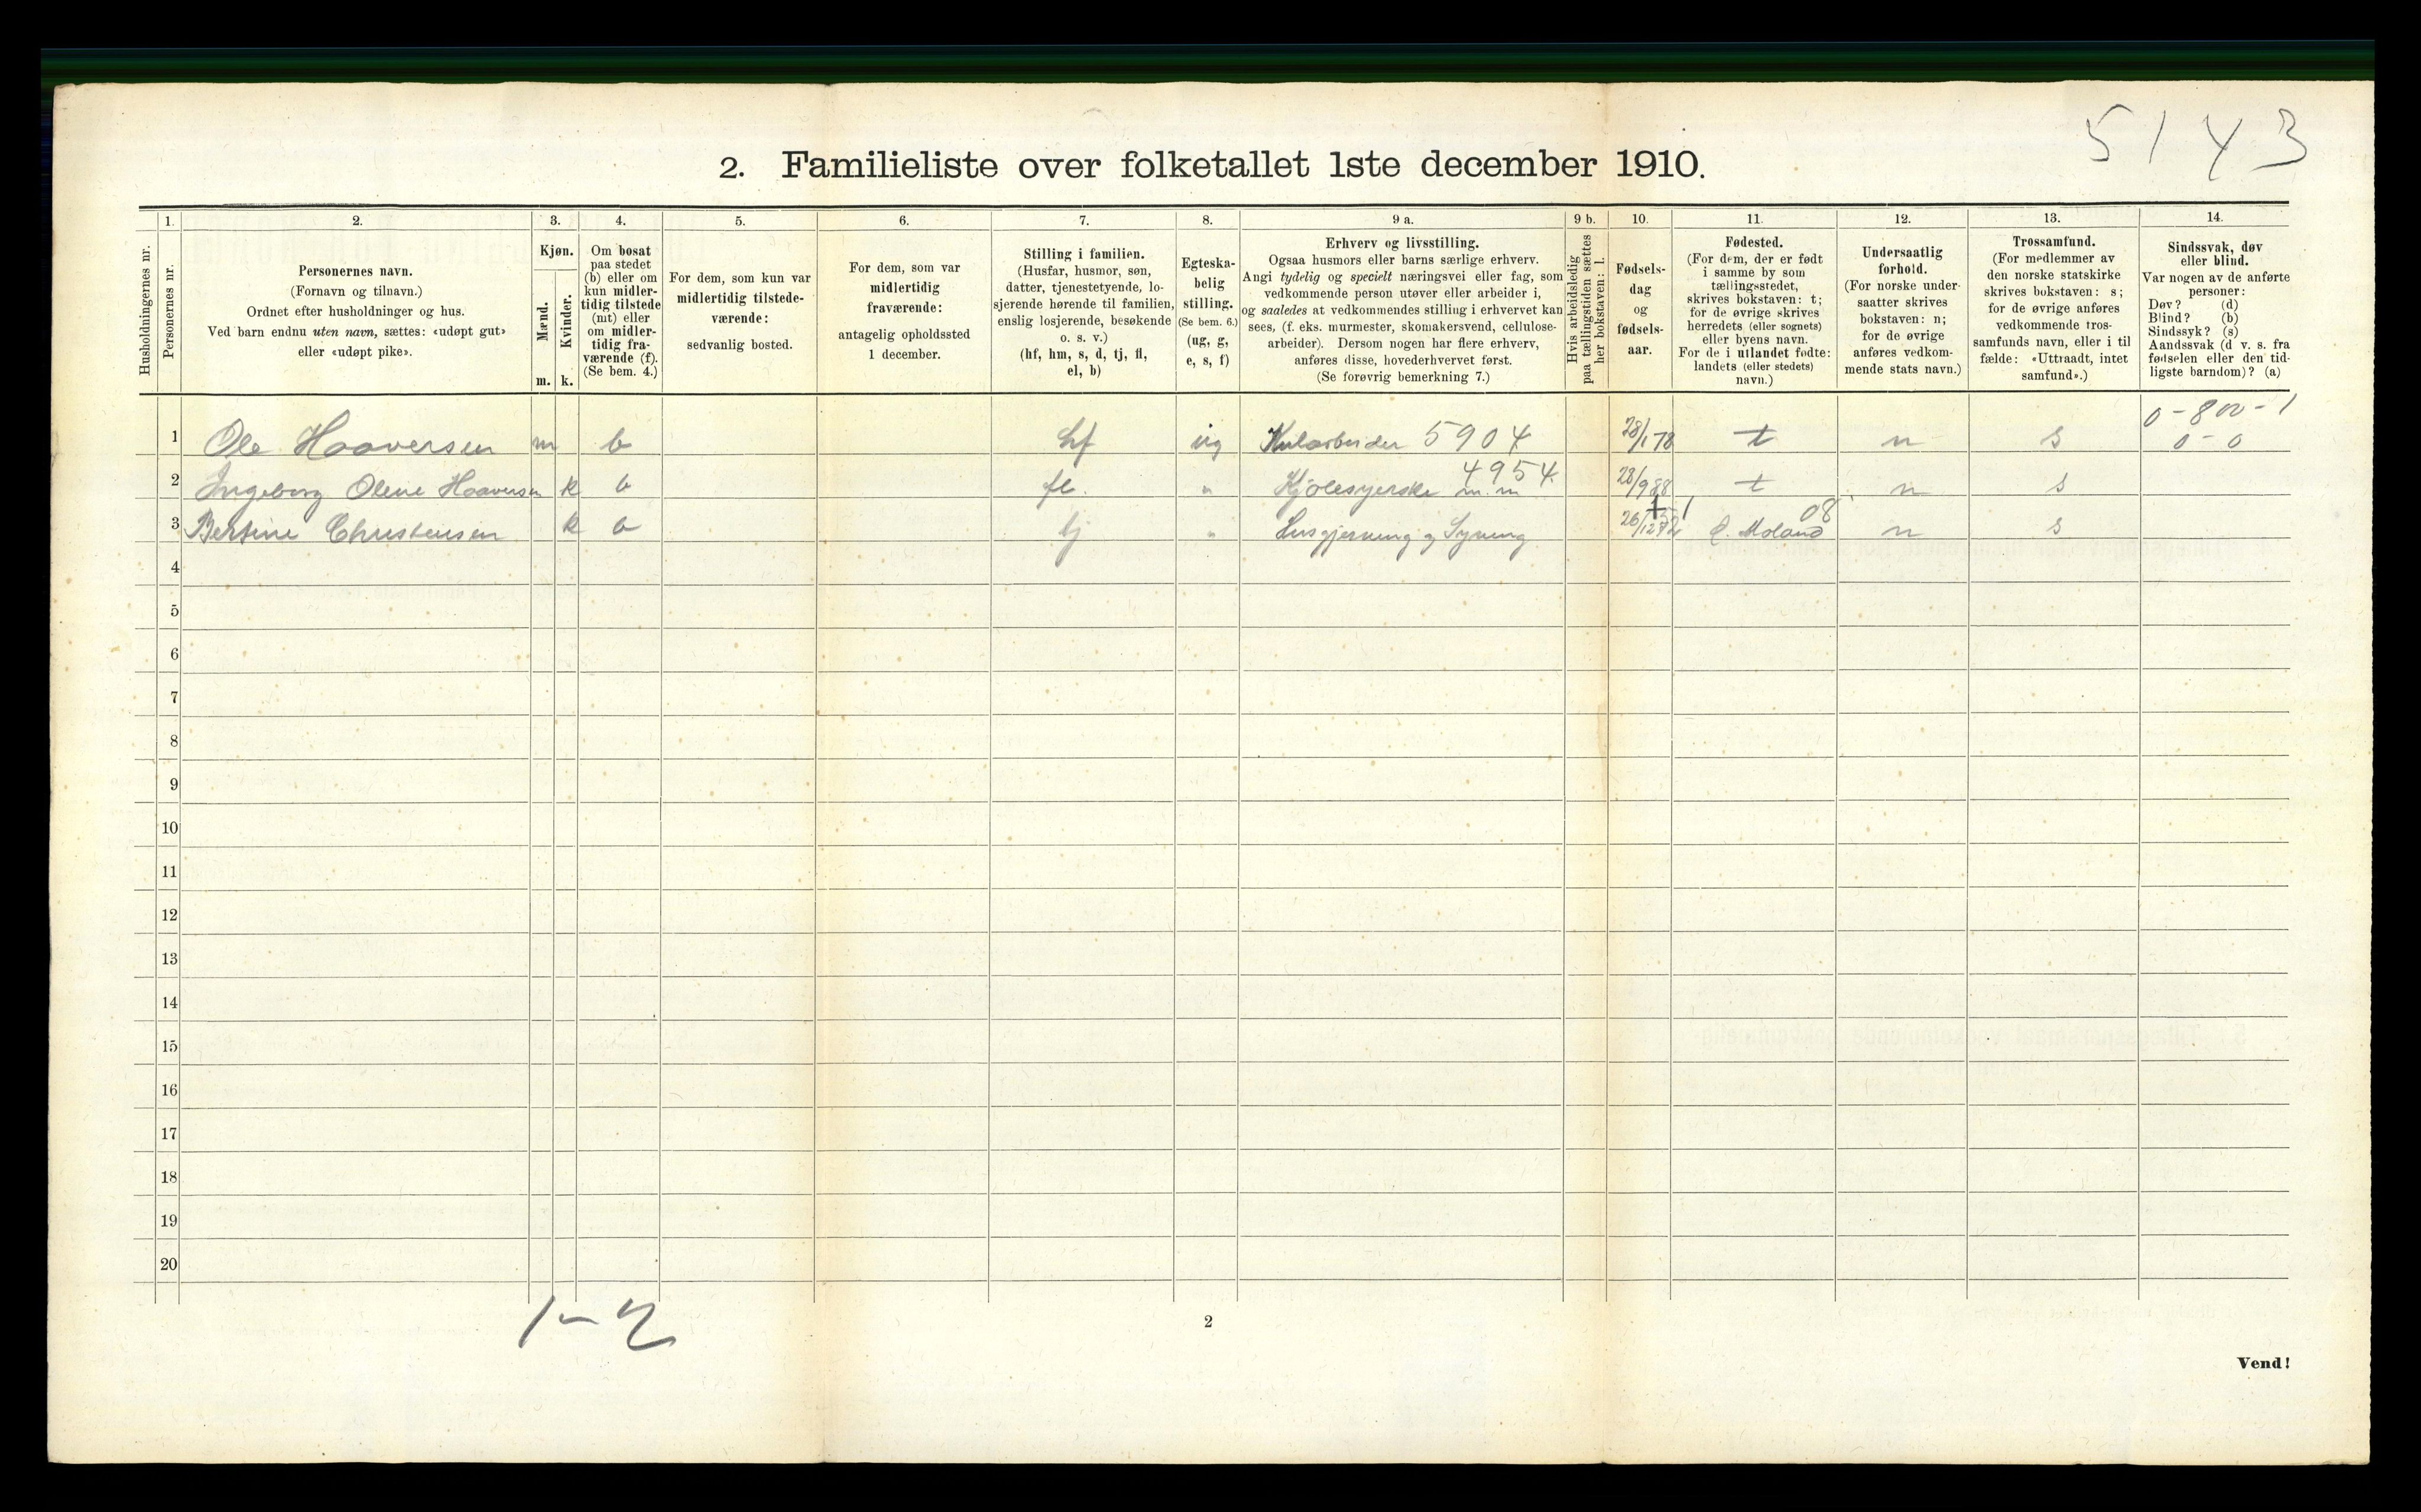 5143
2. Familieliste over folketallet 1ste december 1910.
Husholdningernes nr.
1.
Personernes nr.
2.
Personernes navn.
(Fornavn og tilnavn.)
Ordnet efter husholdninger og hus.
Ved barn endnu uten navn, sættes: «udøpt gut»
eller «udøpt pike».
3.
Kjøn.
Mænd.
Kvinder.
m. k.
4.
Om bosat
paa stedet
(b) eller om
kun midler-
tidig tilstede
(mt) eller
om midler-
tidig fra-
værende (f).
(Se bem. 4.)
5.
For dem, som kun var
midlertidig tilstede-
værende:
sedvanlig bosted.
6.
For dem, som var
midlertidig
fraværende:
antagelig opholdssted
1 december.
7.
Stilling i familien.
(Husfar, husmor, søn,
datter, tjenestetyende, lo-
sjerende hørende til familien,
enslig losjerende, besøkende
o. s. v.)
(hf, hm, s, d, tj, fl,
el, b)
8.
Egteska-
belig
stilling.
(Se bem. 6.)
(ug, g,
e, s, f)
9 a.
Erhverv og livsstilling.
Ogsaa husmors eller barns særlige erhverv.
Angi tydelig og specielt næringsvei eller fag, som
vedkommende person utøver eller arbeider i,
og saaledes at vedkommendes stilling i erhvervet kan
sees, (f. eks. murmester, skomakersvend, cellulose-
arbeider). Dersom nogen har flere erhverv,
anføres disse, hovederhvervet først.
(Se forøvrig bemerkning 7.)
9 b.
Hvis arbeidsledig
paa tællingstiden sættes
her bokstaven: l.
10.
Fødsels-
dag
og
fødsels-
aar.
11.
Fødested.
(For dem, der er født
i samme by som
tællingsstedet,
skrives bokstaven: t;
for de øvrige skrives
herredets (eller sognets)
eller byens navn.
For de i utlandet fødte:
landets (eller stedets)
navn.)
12.
Undersaatlig
forhold.
(For norske under-
saatter skrives
bokstaven: n;
for de øvrige
anføres vedkom-
mende stats navn.)
13.
Trossamfund.
(For medlemmer av
den norske statskirke
skrives bokstaven: s;
for de øvrige anføres
vedkommende tros-
samfunds navn, eller i til
fælde: «Uttraadt, intet
samfund».)
14.
Sindssvak, døv
eller blind.
Var nogen av de anførte
personer:
Døv? (d)
Blind? (b)
Sindssyk? (s)
Aandssvak (d v. s. fra
fødselen eller den tid-
ligste barndom)? (a)
0-800-1
1 Ole Haaversen m b hf ug Kularbeider 5904 28/1 78 t n s 0-0
4954
2 Ingeborg Oline Haaversen k b fl. " Kjolesyerske m.m 28/9 88 t n s
08
3 Bertine Christensen k b tj " Husgjerning og Syning 26/12 Ø. Moland n s
4
5
6
7
8
9
10
11
12
13
14
15
16
17
18
19
20
1-2
2
Vend!